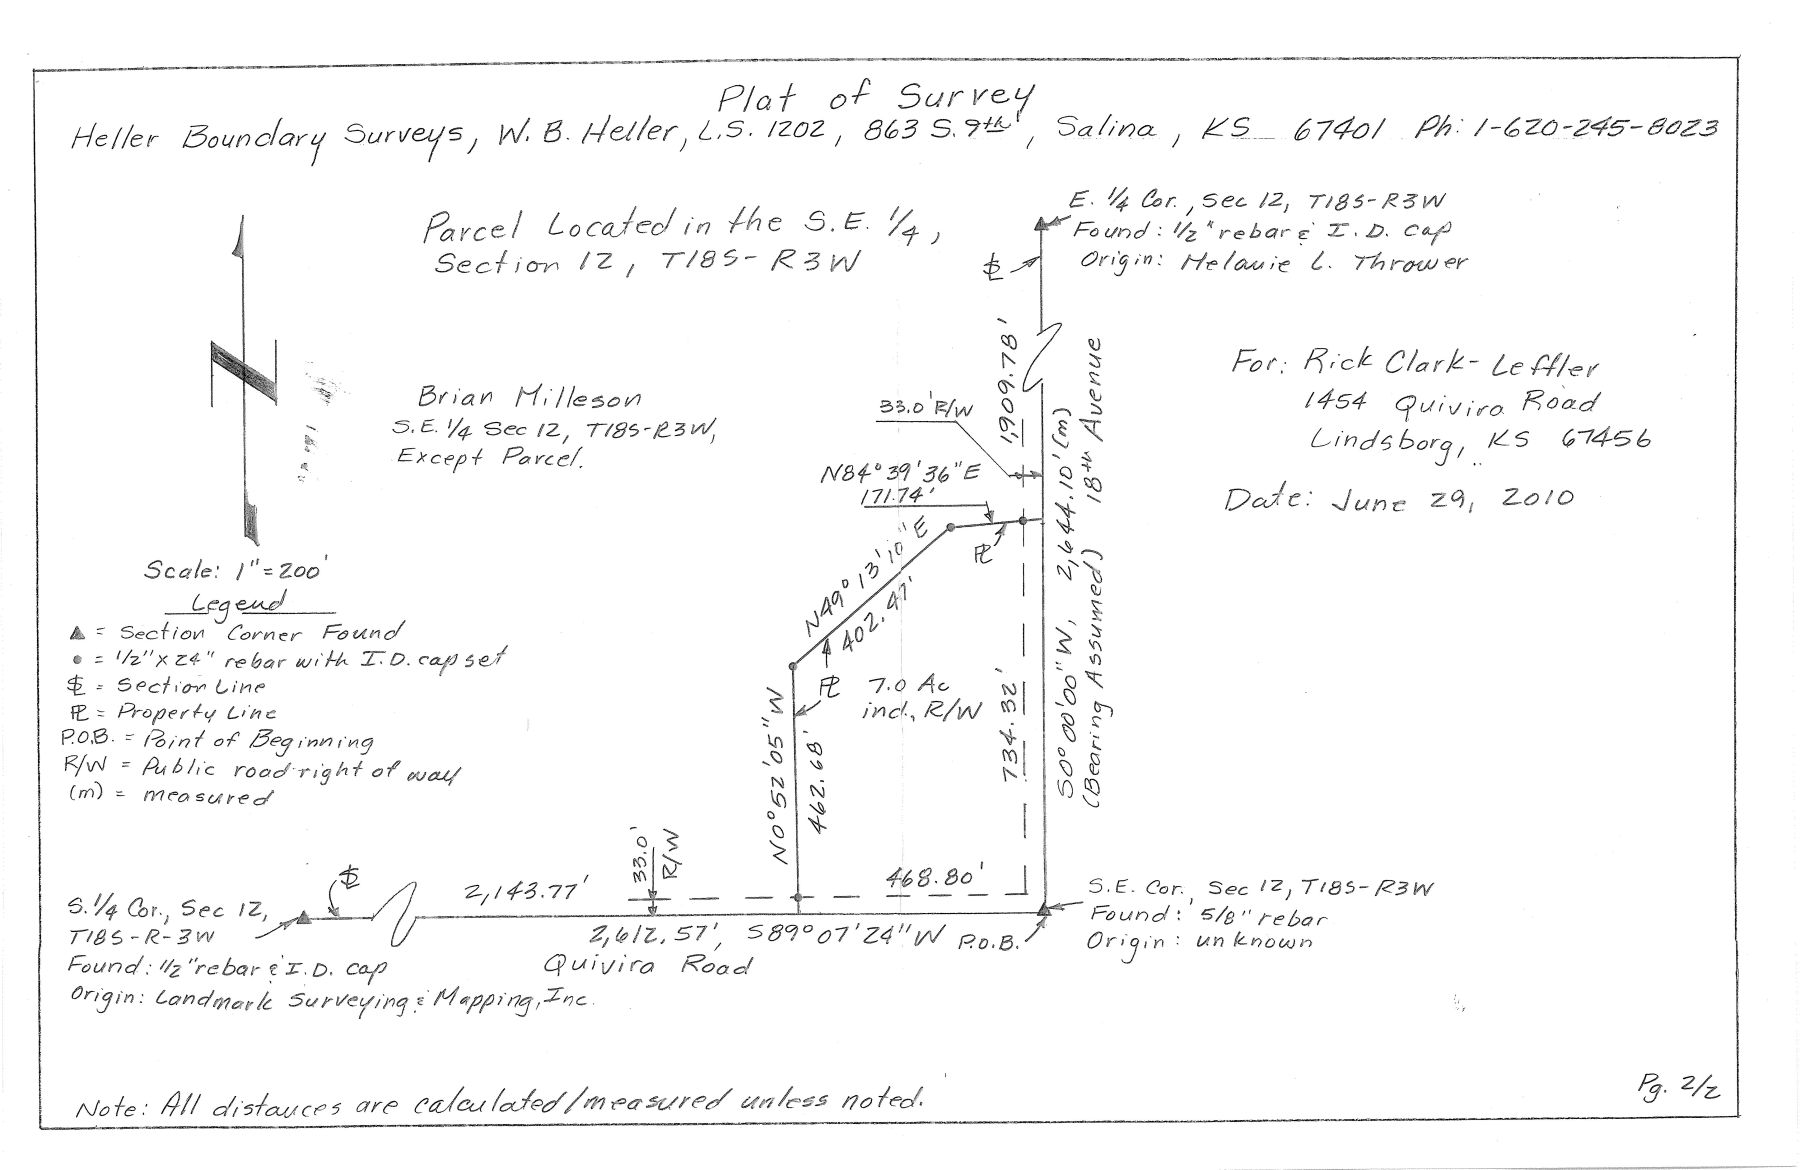 Plat of Survey
Heller Boundary Surveys, W. B. Heller, L.S. 1202, 863 S. 9th, Salina, KS 67401 Ph: 1-620-245-8023
Parcel Located in the S.E. 1/4,
Section 12, T18S-R3W
E. 1/4 Cor., Sec 12, T18S-R3W
Found: 1/2" rebar & I.D. cap
Origin: Melanie L. Thrower
SL
For: Rick Clark-Leffler
1454 Quivira Road
Lindsborg, KS 67456
Date: June 29, 2010
Brian Milleson
S.E. 1/4 Sec 12, T18S-R3W,
Except Parcel.
33.0' R/W
1,909.78'
N84°39'36"E
171.74'
PL
N49°13'10"E
402.47'
PL
7.0 Ac
incl., R/W
N0°52'05"W
462.68'
734.32'
S0°00'00"W, 2,644.10'(m)
(Bearing Assumed) 18th Avenue
N
Scale: 1"=200'
Legend
▲ = Section Corner Found
• = 1/2"x24" rebar with I.D. cap set
SL = Section Line
PL = Property Line
P.O.B. = Point of Beginning
R/W = Public road right of way
(m) = measured
SL
2,143.77'
33.0'
R/W
468.80'
S. 1/4 Cor., Sec 12,
T18S-R-3W
Found: 1/2" rebar & I.D. cap
Origin: Landmark Surveying & Mapping, Inc.
2,612.57', S89°07'24"W
P.O.B.
Quivira Road
S.E. Cor., Sec 12, T18S-R3W
Found: 5/8" rebar
Origin: unknown
Note: All distances are calculated/measured unless noted.
Pg. 2/2